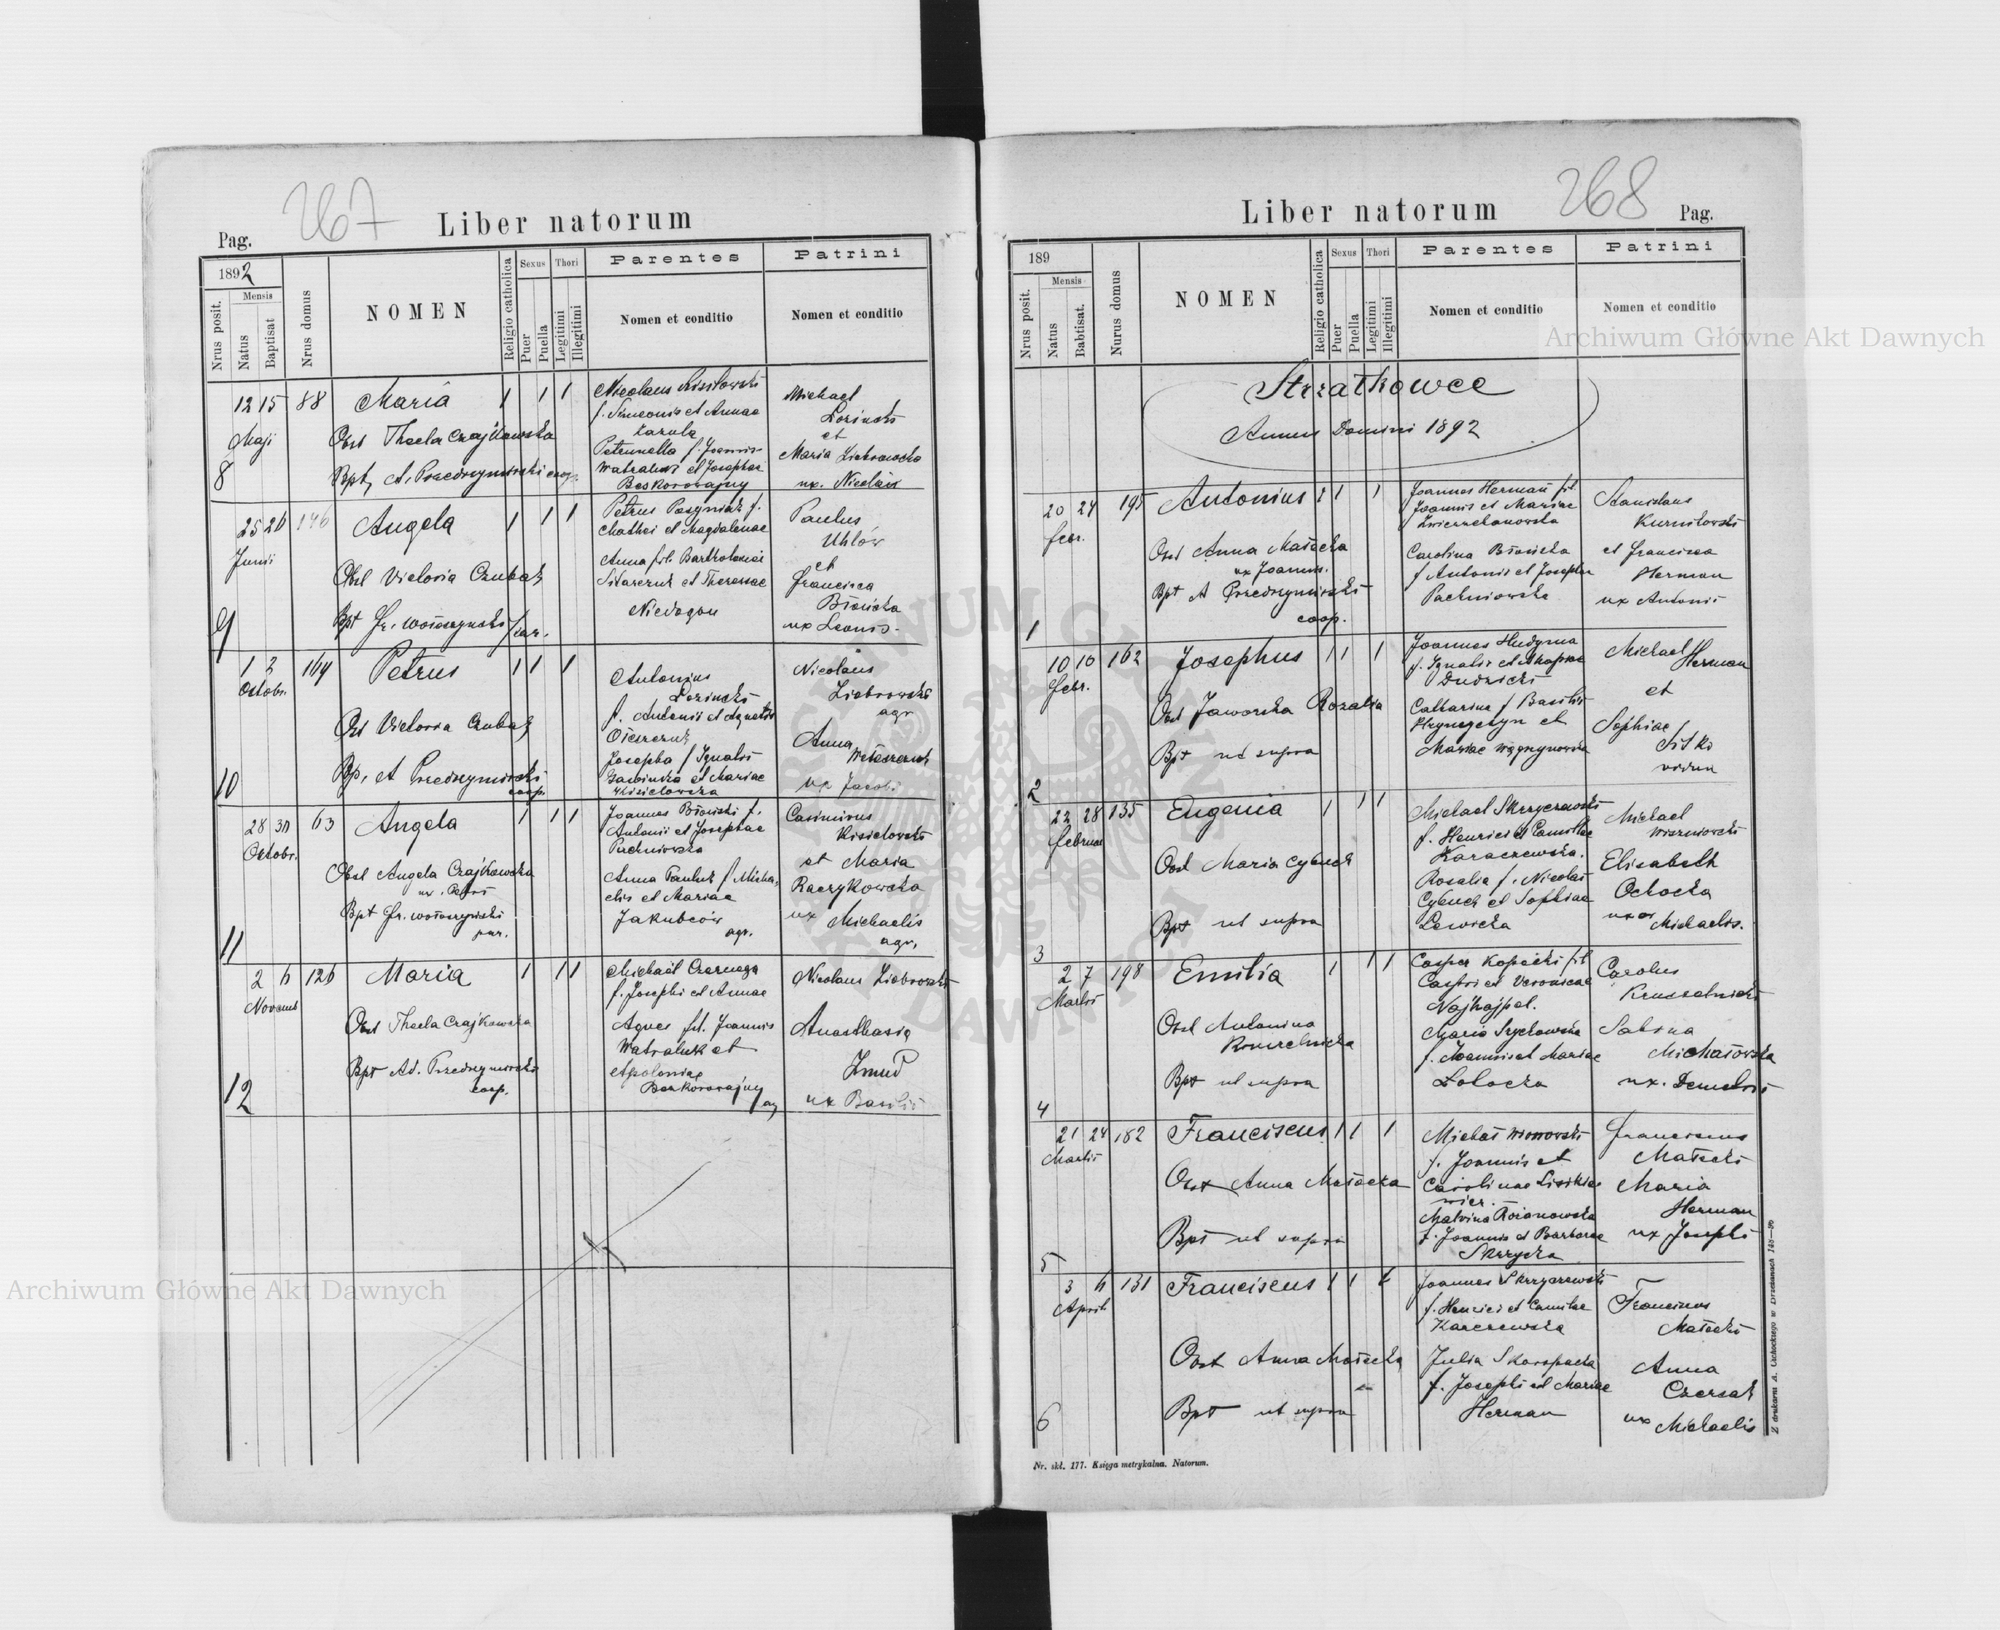 267
Liber natorum
Pag.
1892
Nrus posit.
Mensis
Natus
Baptisat
Nrus domus
NOMEN
Religio catholica
Sexus
Puer
Puella
Thori
Legitimi
Illegitimi
Parentes
Nomen et conditio
Patrini
Nomen et conditio
12 15 88 Maria 1 1 1
Maji
Obst Thecla Czajkowska
8 Bpt, A. Przedrzymirski coop.
Nicolaus
f. Simeonis et Annae
Petronella f. Joannis
et Josephae
Beskorovajny
Michael
Lozinski
et
Maria Ziobrowska
ux. Nicolai
25 26 146 Angela 1 1 1
Junii
Obst Victoria Czubak
9 Bpt Fr. Wołoszynski par.
Petrus Pasyniak f.
Mathei et Magdalenae
Anna fil. Bartholomei
et Theressae
Niedogon
Paulus
Uhlów
et
Francisca
Błońska
ux Leonis
1 2 164 Petrus 1 1 1
Octobr.
Obst Victoria Czubak
10 Bp. A Przedrzymirski
coop.
Antonius
Lozinski
f. Antonii et Agnetis
Josepha f Ignatii
et Mariae
Kisielowska
Nicolaus
Ziobrowski
agr
Anna
ux Jacobi
28 30 63 Angela 1 1 1
Octobr.
Obst Angela Czajkowska
ux. Petri
Bpt Fr. Wołoszynski
par.
11
Joannes Błoński f.
Antonii et Josephae
Puchniowska
Anna Pauluk f Micha-
elis et Mariae
Jakubców
agr.
Casimirus
Kisielowski
et Maria
Raczykowska
ux Michaelis
agr.
2 6 126 Maria 1 1 1
Novemb
Obst Thecla Czajkowska
Bpt Ad. Przedrzymirski
coop.
12
Michael Czarnega
f. Josephi et Annae
Agnes fil. Joannis
Watraluk et
Apoloniae
Beskorovajny
Nicolaus Ziobrowski
Anasthasia
Zmud
ux Basilii
Liber natorum
268
Pag.
189
Nrus posit.
Mensis
Natus
Babtisat.
Nurus domus
NOMEN
Religio catholica
Sexus
Puer
Puella
Thori
Legitimi
Illegitimi
Parentes
Nomen et conditio
Patrini
Nomen et conditio
Strzałkowce
Annus Domini 1892
20 24 195 Antonius 1 1 1
Febr.
Obst Anna Małecka
ux Joannis.
Bpt A Przedrzymirski
coop.
1
Joannes Herman fil
Joannis et Mariae
Carolina Błońska
f Antonii et Josepha
Puchniowska
Stanislaus
Kurniłowski
et Francisca
Herman
ux Antonii
10 10 162 Josephus 1 1 1
Febr.
Obst Jaworska Rozalia
Bpt ut supra
2
Joannes Hudyma
f. Ignatii et Agapiae
Dudzicki
Catharina f Basilii
et
Mariae
Michael Herman
et
Sophiae
Sitko
vidua
22 28 135 Eugenia 1 1 1
Februar
Obst Maria Cybuch
Bpt ut supra
3
Michael Skrzyczewski
f. Henrici et Camillae
Karaczewska.
Rosalia f. Nicolai
Cybuch et Sophiae
Lewicka
Michael
Wiszniowski
Elisabeth
Ochocka
uxor
Michaelis.
2 7 198 Emilia 1 1 1
Martii
Obst Antonina
Bpt ut supra
4
Casper Kopecki fil
Caspri et Veronicae
Najhajpel.
Maria Szychowska
f. Joannis et Mariae
Lolocka
Carolus
Kruszelnicki
Sabina
Michałowska
ux. Demetrii
21 24 182 Franciscus 1 1 1
Martii
Obst Anna Małecka
Bpt ut supra
5
Michał Wronowski
f. Joannis et
Carolinae Lisikie-
wicz.
Malvina Rożanowska
f. Joannis et Barbarae
Skrzycka
Franciscus
Małecki
Maria
Herman
ux Josephi
3 6 131 Franciscus 1 1 1
Aprili
Obst Anna Małecka
Bpt ut supra
6
Joannes Skrzyczewski
f. Henrici et Camilae
Karczewska
Julia Skoropacka
f. Josephi et Mariae
Herman
Franciscus
Małecki
Anna
Czersak
ux
Michaelis
Nr. skł. 177. Księga metrykalna. Natorum.
Archiwum Główne Akt Dawnych
Archiwum Główne Akt Dawnych
ARCHIWUM GŁÓWNE AKT DAWNYCH